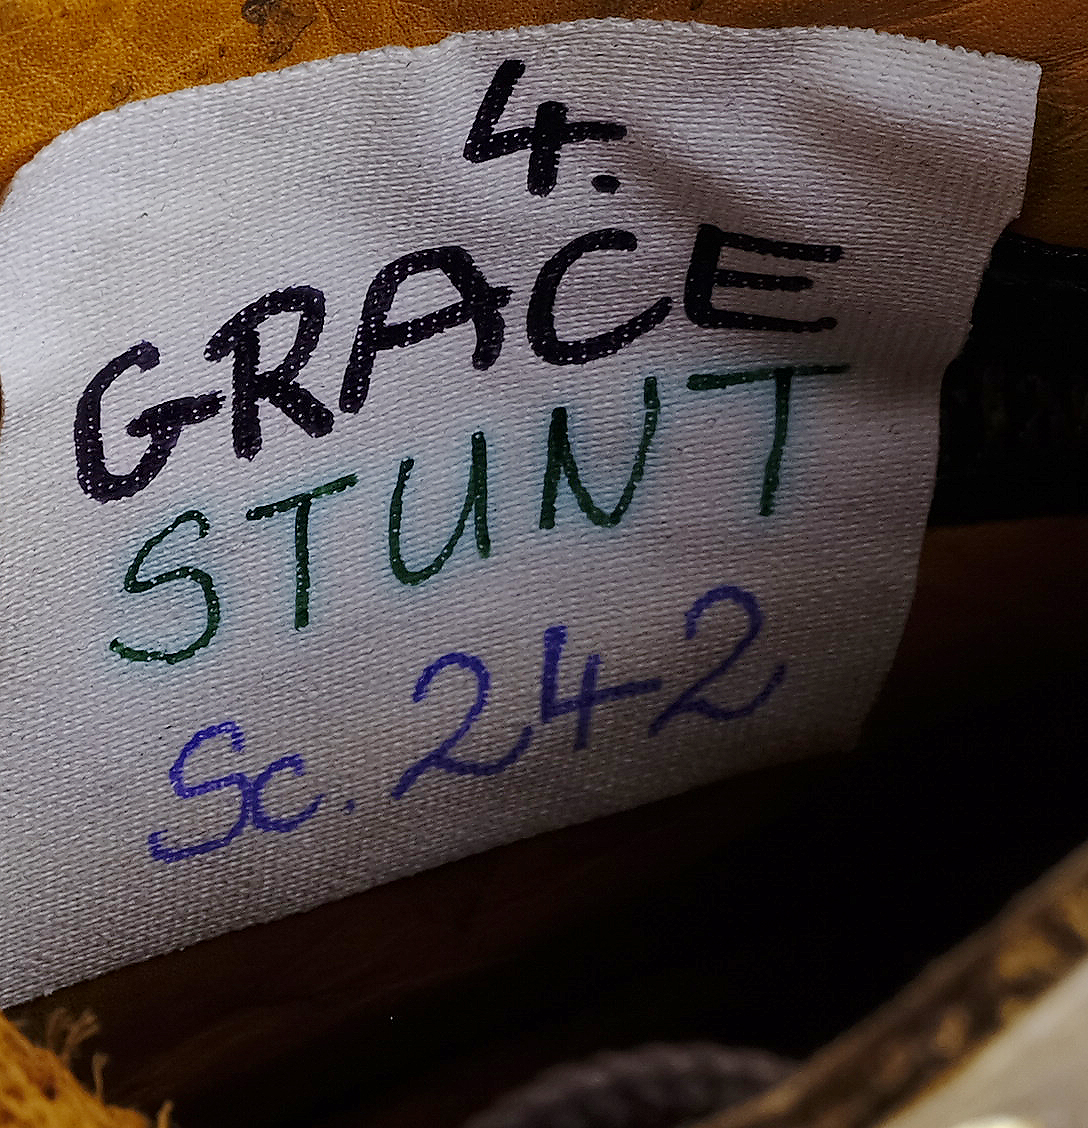 4.
GRACE
STUNT
Sc. 242